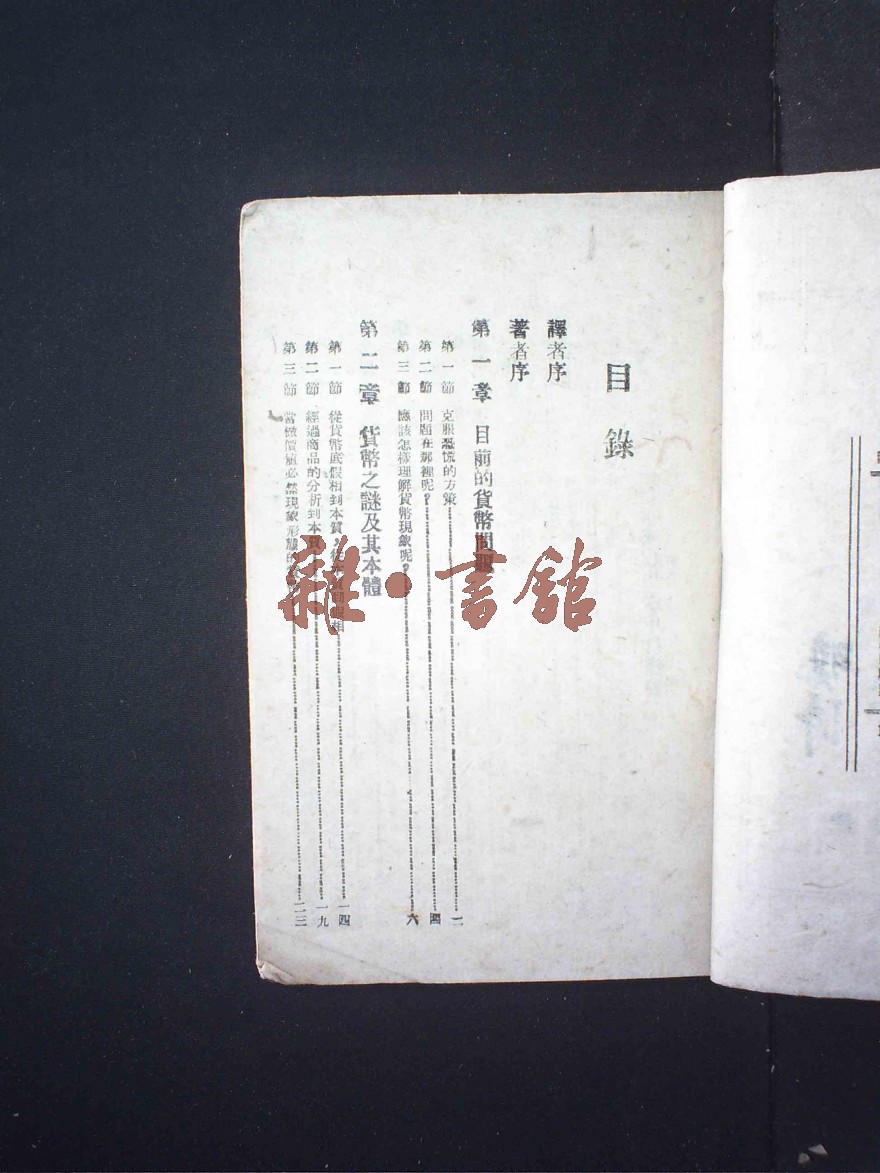 目錄
譯者序
著者序
第一章 目前的貨幣問題
第一節 克服恐慌的方策 二
第二節 問題在那裡呢? 四
第三節 應該怎樣理解貨幣現象呢? 六
第二章 貨幣之謎及其本體
第一節 從貨幣底假相到本質,從本 假相 一四
第二節 經過商品的分析到本質 一九
第三節 當做價值必然現象形態的 二三
雜·書館